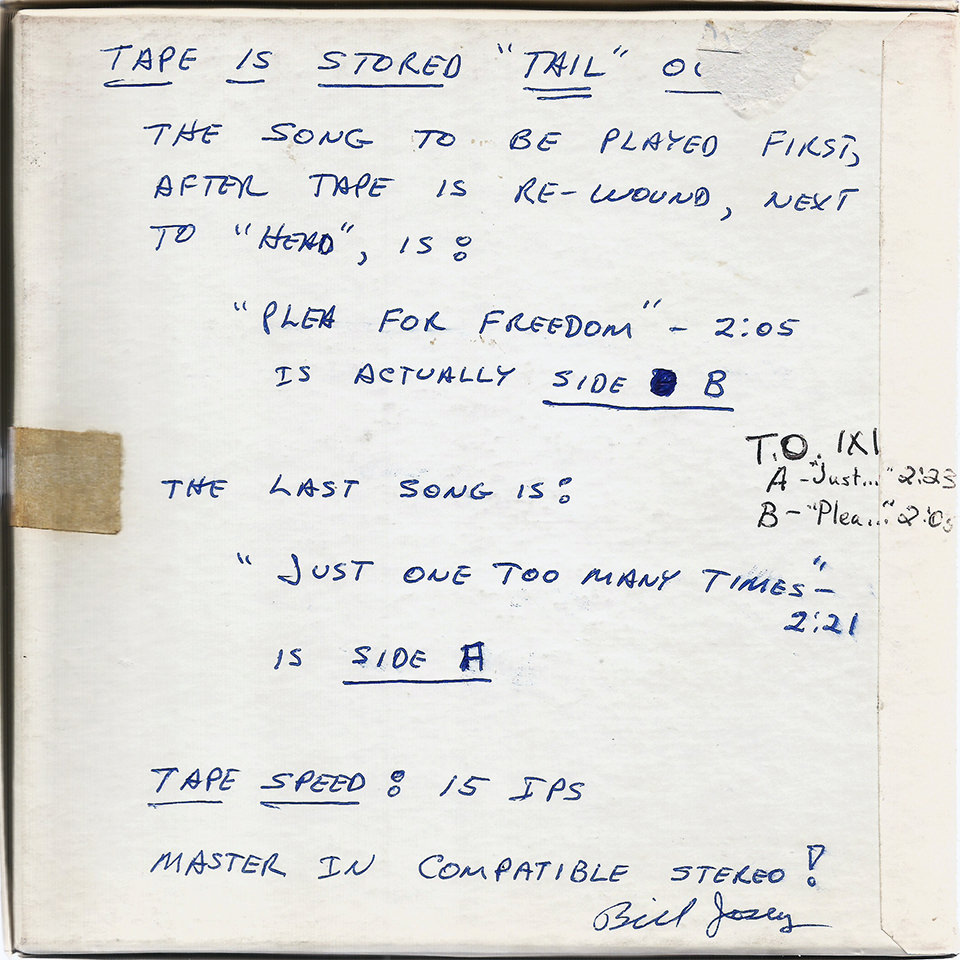 TAPE IS STORED "TAIL"
THE SONG TO BE PLAYED FIRST,
AFTER TAPE IS RE-WOUND, NEXT
TO "HEAD", IS:
"PLEA FOR FREEDOM" - 2:05
IS ACTUALLY SIDE B
T.O. 1X1
A - "Just..." 2:23
B - "Plea..." 2:05
THE LAST SONG IS:
"JUST ONE TOO MANY TIMES" -
2:21
IS SIDE A
TAPE SPEED: 15 IPS
MASTER IN COMPATIBLE STEREO!
Bill Josey